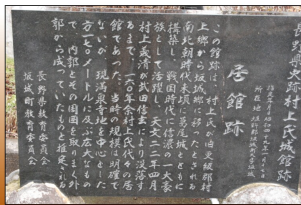 長野県史跡村上氏城館跡
居館跡
この館跡は、村上氏が旧更級郡村
上郷から坂城郷に移ったとされる
南北朝時代末頃に葛尾城とともに
構築し、戦国時代に信濃の一大豪
族として活躍し、天文二二年四月
村上義清が武田信玄により没落す
るまで、一八〇年余村上氏代々の居
館であった。当時の規模は明確で
ないが、現満泉寺地を中心とした
方一七〇メートルに及ぶ広大なもの
で、内郭とその周囲を取りまく外
郭から成っていたものと推定される
長野県教育委員会
坂城町教育委員会